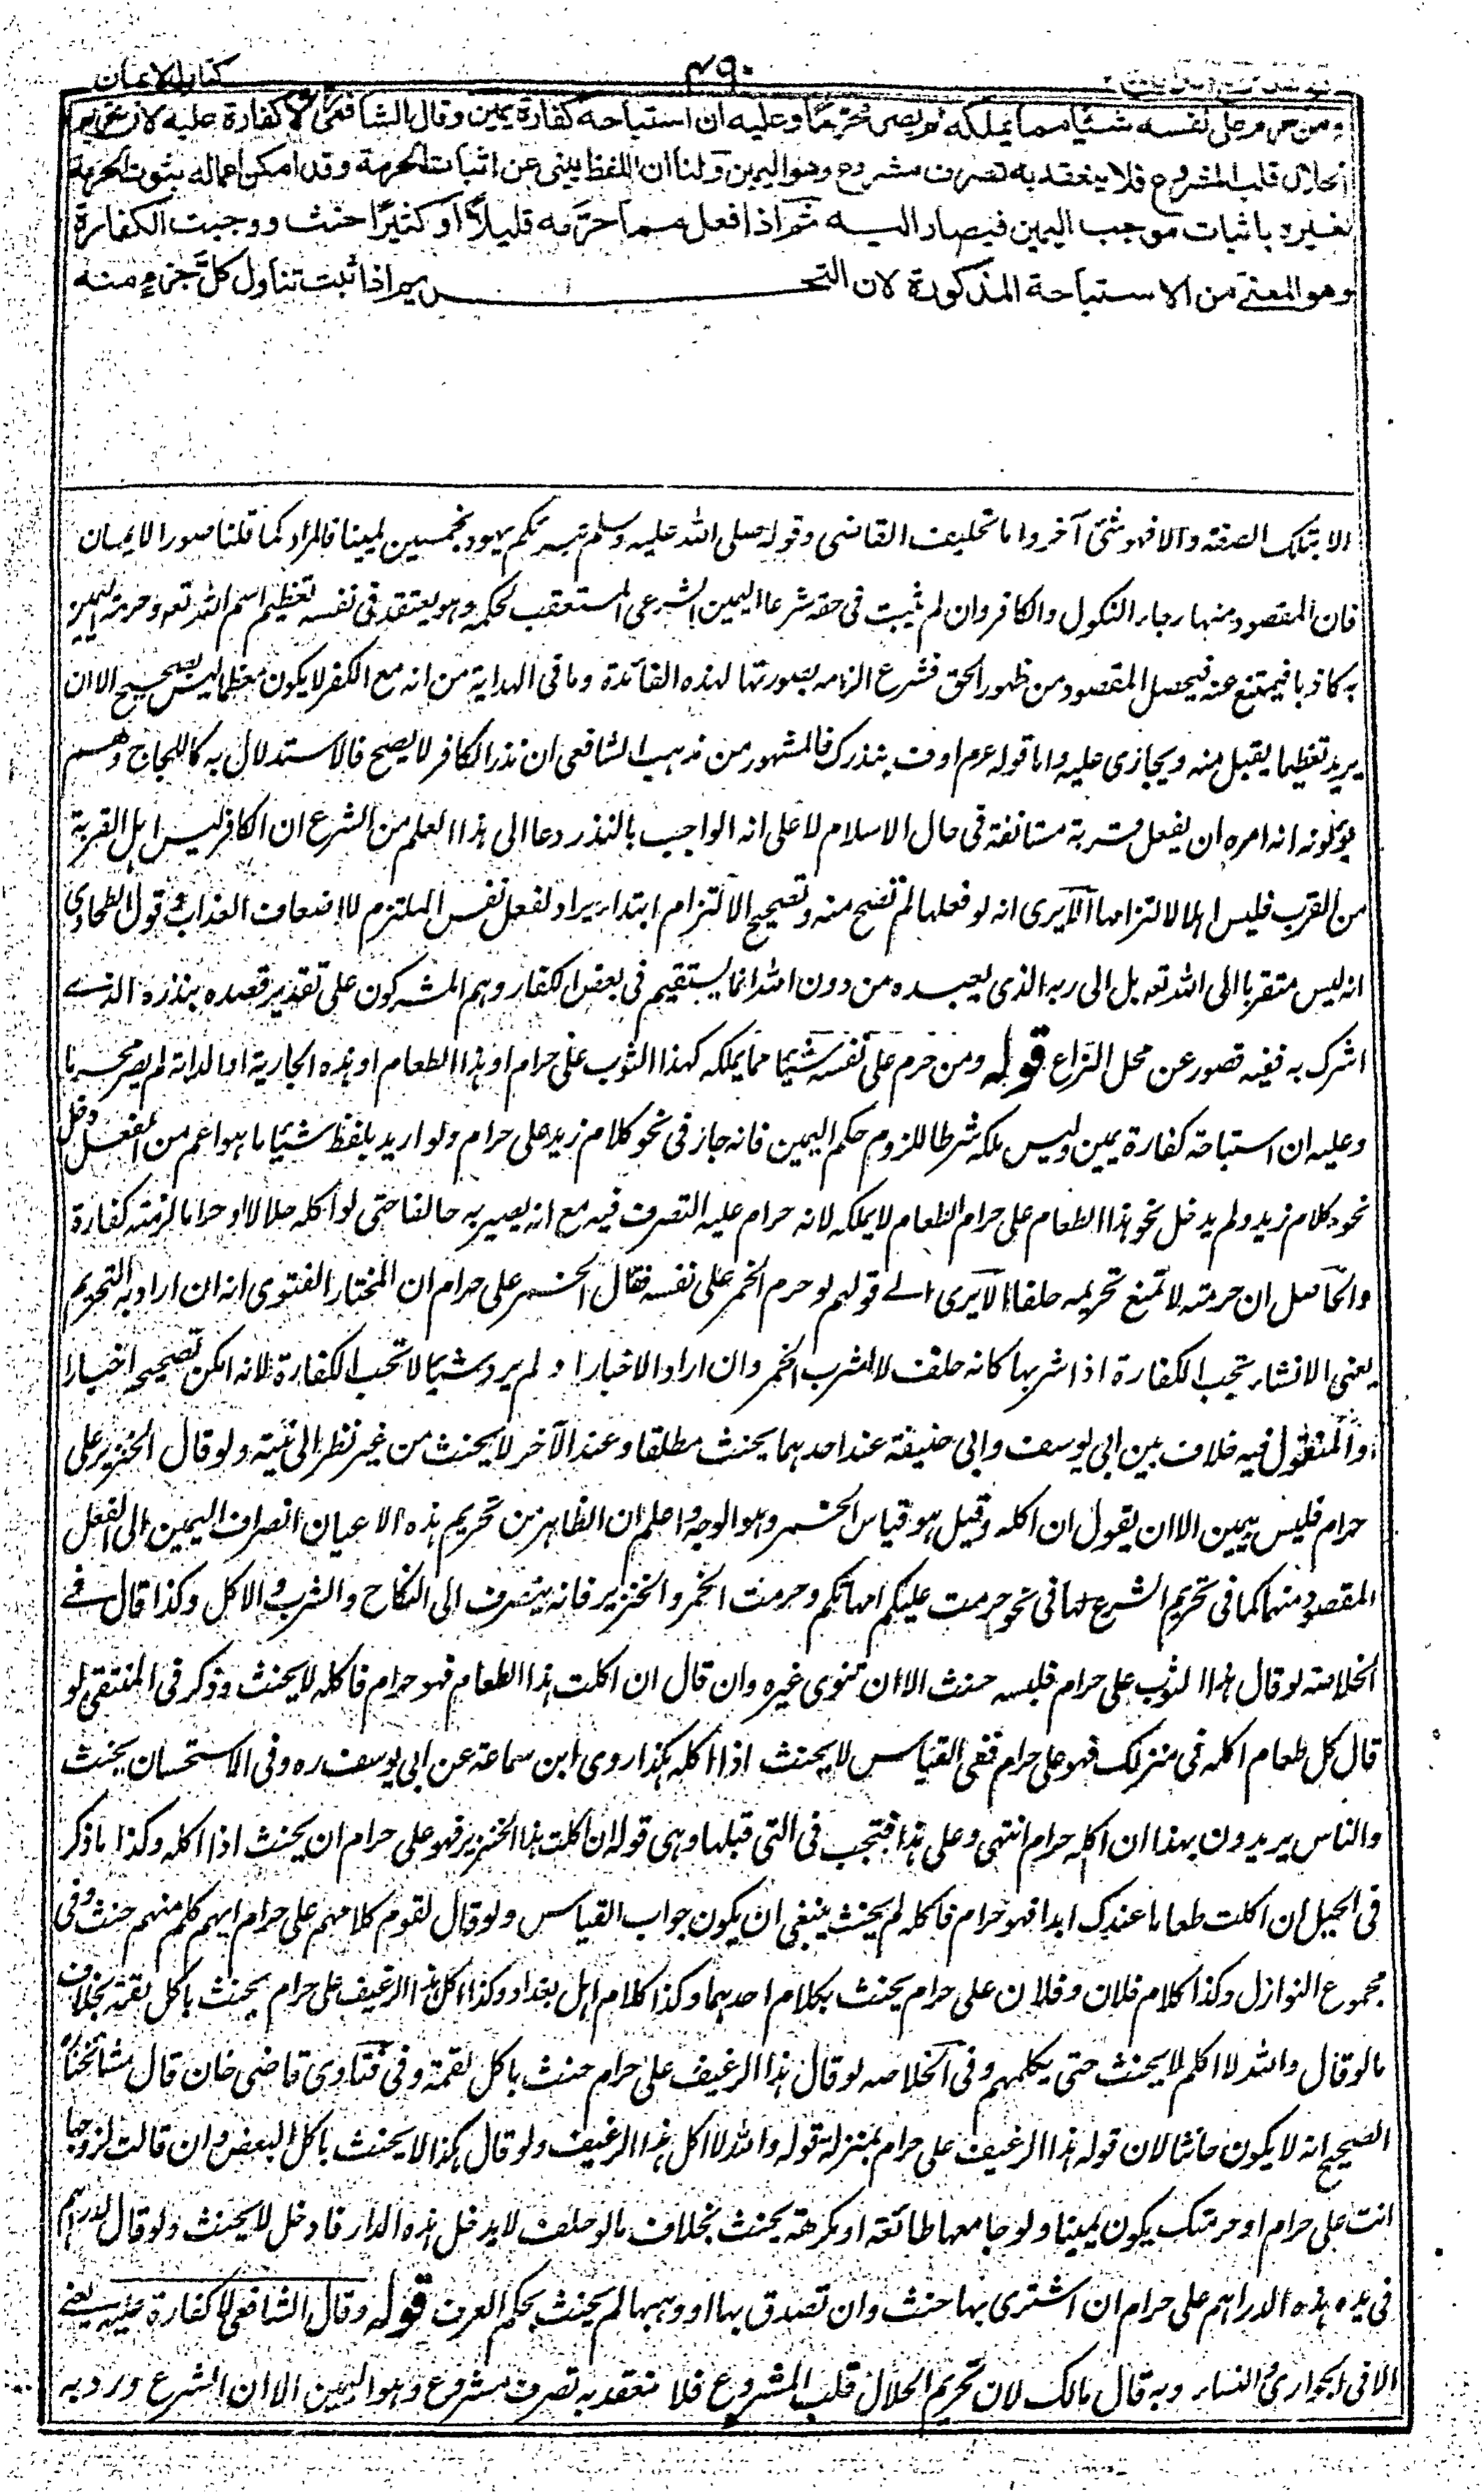 كتاب الايمان
٤٩٠
ومن حرم على نفسه شيئا مما يملكه لم يصر محرما وعليه ان استباحه كفارة يمين وقال الشافعي لا كفارة عليه لان تحريم
الحلال قلب المشروع فلا ينعقد به تصرف مشروع وهو اليمين ولنا ان اللفظ ينبئ عن اثبات الحرمة وقد امكن اعماله بثبوت الحرمة
لغيره باثبات موجب اليمين فيصار اليه ثم اذا فعل مما حرّمه قليلاً أو كثيرًا حنث ووجبت الكفارة
وهو المعنے من الاستباحة المذكورة لان التحريم اذا ثبت تناول كلَّ جزءٍ منه
الا بتلك الصفة والا فهو شئ آخر واما تحليف القاضى وقوله صلى الله عليه وسلم تبرئكم يهود بخمسين يمينا فالمراد كما قلنا صور الايمان
فان المقصود منها رجاء النكول والكافر وان لم يثبت فى حقه شرعا اليمين الشرعى المستعقب لحكمه وهو يعتقد فى نفسه تعظيم اسم الله تعہ وحرمة اليمين
به كاذبا فيمتنع عنه فيحصل المقصود من ظهور الحق فشرع الزامه بصورتها لهذه الفائدة وما فى الهداية من انه مع الكفر لا يكون معظما ليس بصحيح الا ان
يريد تعظيما يقبل منه ويجازى عليه واما قوله عم اوف بنذرك فالمشهور من مذهب الشافعى ان نذر الكافر لا يصح فالاستدلال به كاللجاج وهم
يؤلونه انه امره ان يفعل قربة مستانفة فى حال الاسلام لا على انه الواجب بالنذر دعا الى هذا العلم من الشرع ان الكافر ليس اهل القربة
من القرب فليس اهلا لالتزامها الا يرى انه لو فعلها لم تصح منه وتصحيح الالتزام ابتداء يراد لفعل نفس الملتزم لا اضعاف العذاب وقول الطحاوى
انه ليس متقربا الى الله تعہ بل الى ربه الذى يعبده من دون الله انما يستقيم فى بعض الكفار وهم المشركون على تقدير قصده بنذره الذے
اشرك به ففيه قصور عن محل النزاع قوله ومن حرم على نفسه شيئا مما يملكه كهذا الثوب على حرام او هذا الطعام او هذه الجارية او الدابة لم يصر محرما
وعليه ان استباحه كفارة يمين وليس ملكه شرطا للزوم حكم اليمين فانه جاز فى نحو كلام زيد على حرام ولو اريد بلفظ شيئا ما هو اعم من الفعل دخل
نحو كلام زيد ولم يدخل نحو هذا الطعام على حرام الطعام لا يملكه لانه حرام عليه التصرف فيه مع انه يصير به حالفا حتى لو اكله حلالا او حراما لزمته كفارة
والحاصل ان حرمته لا تمنع تحريمه حلفا الا يرى الے قولهم لو حرم الخمر على نفسه فقال الخمر على حرام ان المختار الفتوى انه ان اراد به التحريم
يعنى الانشاء تجب الكفارة اذا شربها كانه حلف لا اشرب الخمر وان اراد الاخبار او لم يرد شيئا لا تجب الكفارة لانه امكن تصحيحه اخبارا
والمنقول فيه خلاف بين ابى يوسف وابى حنيفة عند احدهما يحنث مطلقا وعند الآخر لا يحنث من غير نظر الى نية ولو قال الخنزير على
حرام فليس بيمين الا ان يقول ان اكله وقيل هو قياس الخمر وهو الوجه واعلم ان الظاهر من تحريم هذه الاعيان انصراف اليمين الى الفعل
المقصود منها كما فى تحريم الشرع لها فى نحو حرمت عليكم امهاتكم وحرمت الخمر والخنزير فانه ينصرف الى النكاح والشرب والاكل وكذا قال فے
الخلاصة لو قال هذا الثوب على حرام فلبسه حنث الا ان تنوى غيره وان قال ان اكلت هذا الطعام فهو حرام فاكله لا يحنث وذكر فى المنتقى لو
قال كل طعام اكله فى منزلك فهو على حرام ففى القياس لا يحنث اذا اكله هكذا روى ابن سماعة عن ابى يوسف ره وفى الاستحسان يحنث
والناس يريدون بهذا ان اكله حرام انتهى وعلى هذا فتجب فى التى قبلها وهى قوله ان اكلت هذا الخنزير فهو على حرام ان يحنث اذا اكله وكذا ما ذكر
فى الحيل ان اكلت طعاما عندك ابدا فهو حرام فاكله لم يحنث ينبغى ان يكون جواب القياس ولو قال لقوم كلامهم على حرام ايهم كلم منهم حنث وفى
مجموع النوازل وكذا كلام فلان وفلان على حرام يحنث بكلام احدهما وكذا كلام اهل بغداد وكذا اكل هذا الرغيف على حرام يحنث باكل لقمة بخلاف
ما لو قال والله لا اكلم لا يحنث حتى يكلمهم وفى الخلاصه لو قال هذا الرغيف على حرام حنث باكل لقمة وفى فتاوى قاضى خان قال مشائخنا
الصحيح انه لا يكون حانثا لان قوله هذا الرغيف على حرام بمنزلة قوله والله لا اكل هذا الرغيف ولو قال هكذا لا يحنث باكل البعض وان قالت لزوجها
انت على حرام او حرمتك يكون يمينا ولو جامعها طائعة او مكرهة يحنث بخلاف ما لو حلف لا يدخل هذه الدار فادخل لا يحنث ولو قال لدراهم
فى يده هذه الدراهم على حرام ان اشترى بها حنث وان تصدق بها او وهبها لم يحنث بحكم العرف قوله وقال الشافعى لا كفارة عليه يعنے
الا فى الجوارى والنساء وبه قال مالك لان تحريم الحلال قلب المشروع فلا ينعقد به تصرف مشروع وهو اليمين الا ان الشرع ورد به